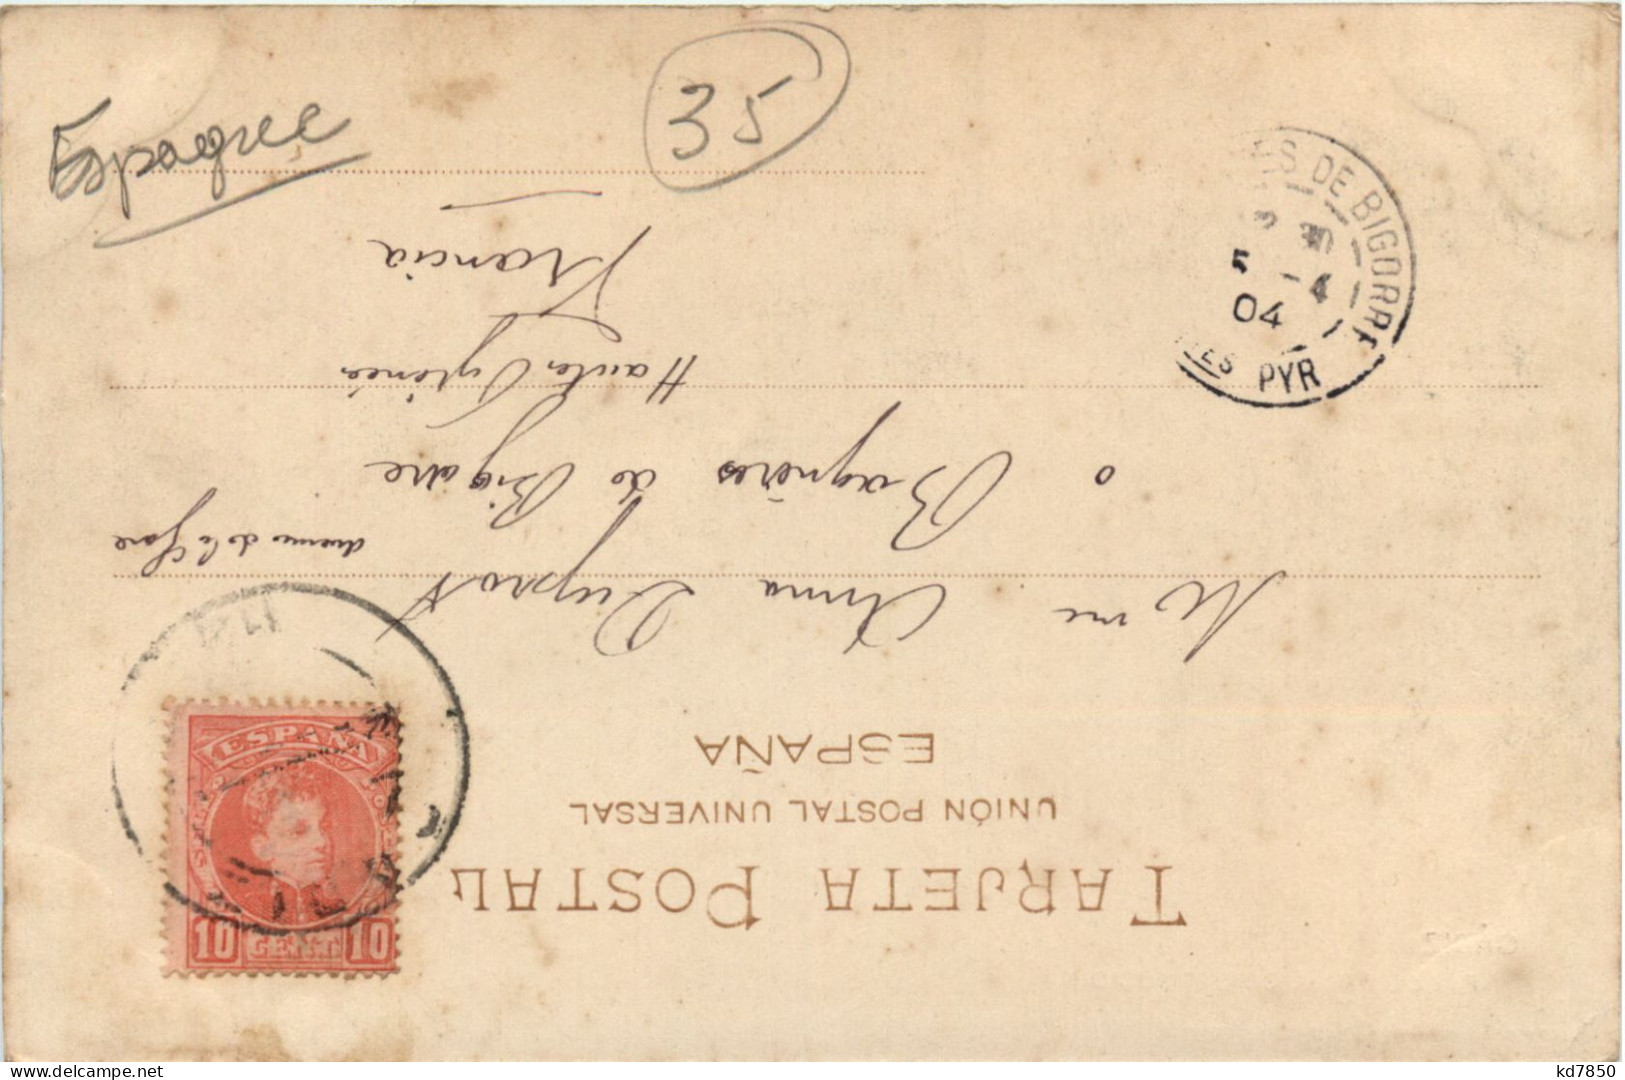 Espagne
35
TARJETA POSTAL
UNIÓN POSTAL UNIVERSAL
ESPAÑA
Mme Anna Duprat
avenue de la Gare
à Bagnères de Bigorre
Hautes Pyrénées
Francia
ES DE BIGORRE
5 -4
04
TES PYR
ESPAÑA
10 CENT. 10
kd7850